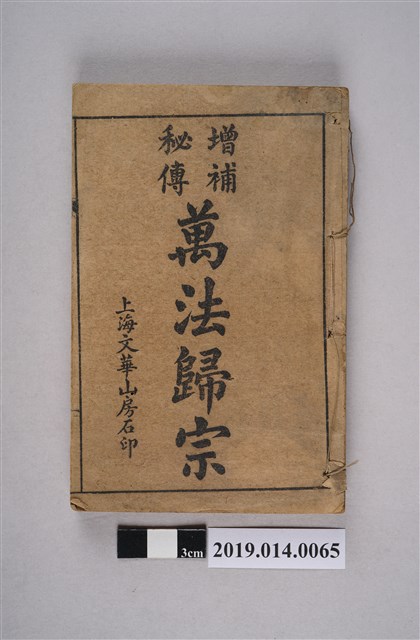 增補
秘傳
萬法歸宗
上海文華山房石印
3cm
2019.014.0065